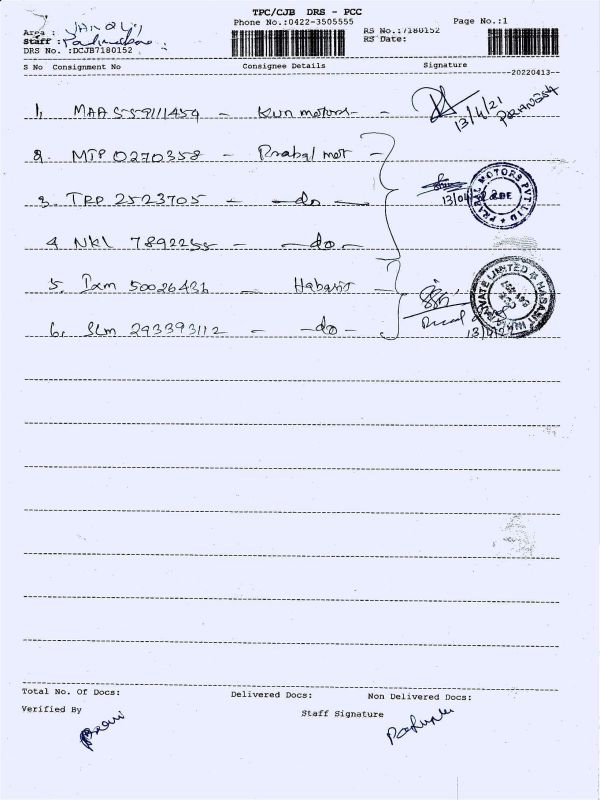 TPC/CJB DRS - PCC
Phone No.:0422-3505555 Page No.:1
Area :
Staff :
DRS No. :DCJB7180152
RS No.:7180152
RS Date:
S No Consignment No Consignee Details Signature
--20220413--
1, MAA 559111459 - Kun motors -
13/4/21
2. MTP 0270358 - Prabal mot -
3. TRP 2523705 - -do-
13/04
PRABAL MOTORS PVT LTD
4. NKL 7892255 - -do-
5. Ixm 50026431 - Habasit
PRIVATE LIMITED HABASIT
6. SLM 293393112 - -do-
Total No. Of Docs: Delivered Docs: Non Delivered Docs:
Verified By Staff Signature